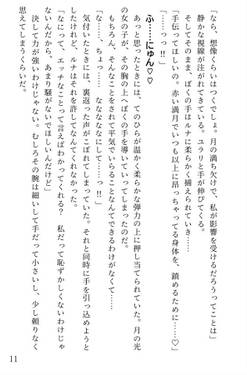 「なら、想像くらいはつくでしょ。月の満ち欠けで、私が影響を受けるだろうってことは」
静かな視線が注がれてきている。ユラリと手が伸びてくる。
そしてそのまま、ぼくの手はルナに柔らかく捕えられていき……
「手伝ってほしいの。赤い満月でいつも以上に昂っちゃってる身体を、鎮めるために……♡」
「……っっ!!」
ふ……にゅん♡♡
あっと思ったときには、てのひらが温かく柔らかな弾力の上に押し当てられていた。月の光
の女の子が、その胸の上へぼくの手を導いてくってしまったのだ。
もちろん、そんなことをされて平気でいることなんてできるわけがなくて……
気付いたときには、裏返った声がこぼれてしまっていた。それと同時に手を引っ込めようと
したけれど、ルナはそれを許してなんてくれなかった。
「なにって、エッチなことって言えばわかってくれる？　私だって恥ずかしくないわけじゃ
ないんだから、あんまり騒がないでほしいんだけど」
決して力が強いわけじゃない。むしろその腕は細いして手だって小さいし、少し頼りなく
思えてしまうくらいだ。
11